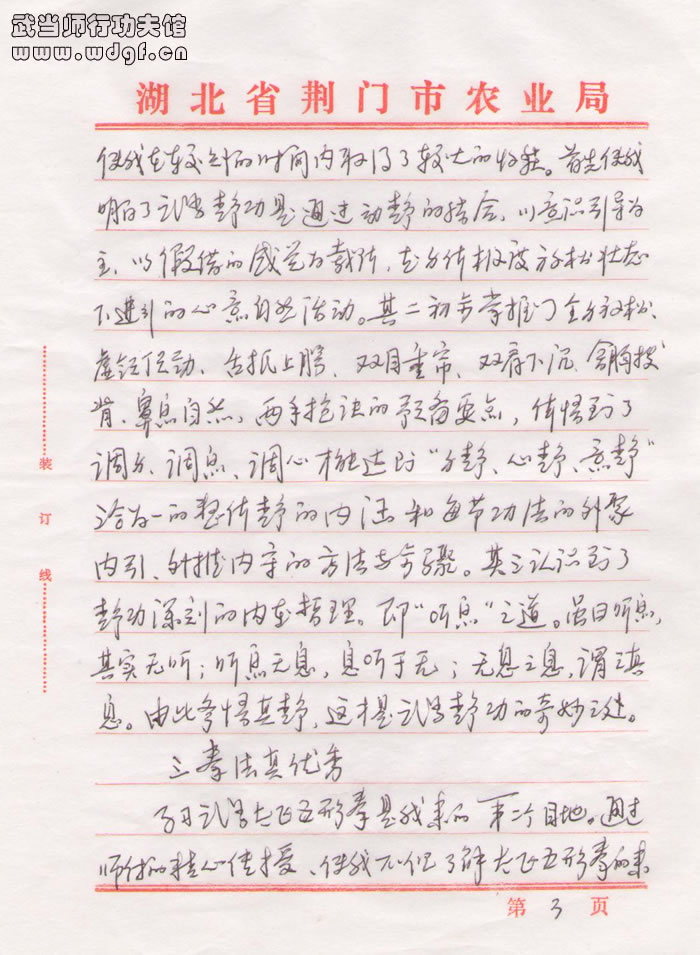 武当师行功夫馆
www.wdgf.cn
湖北省荆门市农业局
使我在较短的时间内取得了较大的收获。首先使我
明白了武当静功是通过动静的结合，以意识引导为
主，以假借的感觉为载体，在身体极度放松状态
下进行的心意自然活动。其二初步掌握了全身放松、
虚领顶劲、舌抵上腭、双目垂帘、双肩下沉、含胸拔
背、鼻息自然，两手抱诀的预备要点，体悟到了
调身、调息、调心才能达到“身静、心静、意静”
洽为一的整体静的内涵和每节功法的外象
内引、外推内守的方法与步骤。其三认识到了
静功深刻的内在哲理。即“听息”之道。虽曰听息，
其实无听；听息无息，息听于无；无息之息，谓之真
息。由此参悟其静，这才是武当静功的奇妙之处。
三拳法真优秀
学习武当太乙五形拳是我来的第二个目地。通过
师付的精心传授、使我不但了解太乙五形拳的来
装
订
线
第 3 页